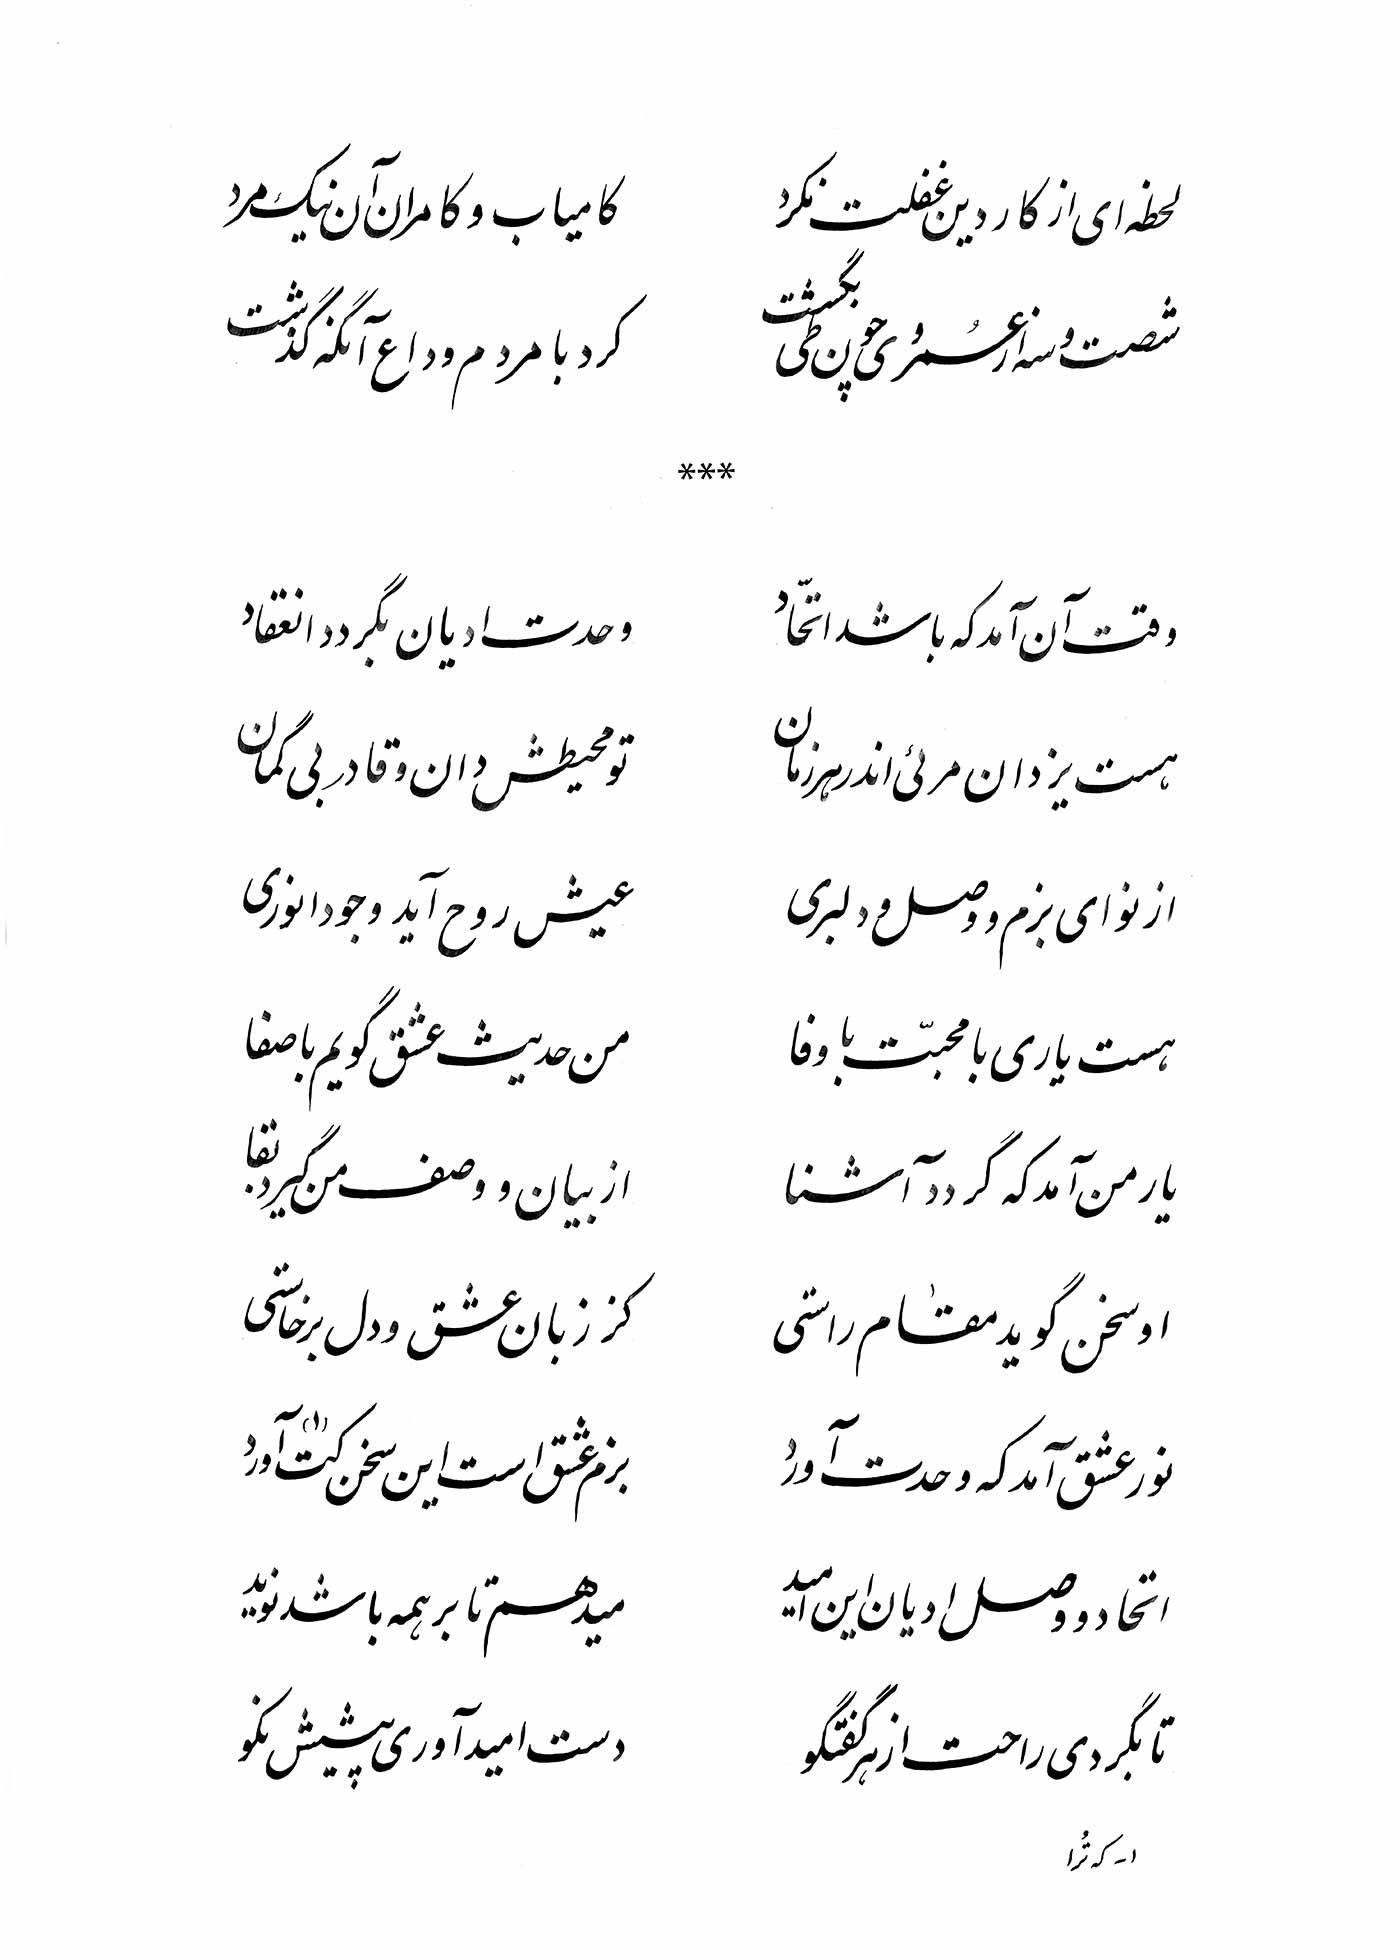 لحظه ای از کار دین غفلت نکرد کامیاب و کامران آن نیک مرد
شصت و سه از عُمر وی چون طی بگشت کرد با مردم وداع آنگه گذشت
***
وقت آن آمد که باشد اتّحاد وحدت ادیان بگردد انعقاد
هست یزدان مرئی اندر هر زمان تو محیطش دان و قادر بی گمان
از نوای بزم و وصل و دلبری عیش روح آید وجود انوری
هست یاری با محبّت با وفا من حدیث عشق گویم با صفا
یار من آمد که گردد آشنا از بیان و وصف من گیرد بقا
او سخن گوید مقام راستی کز زبان عشق و دل برخاستی
نور عشق آمد که وحدت آورد بزم عشق است این سخن کت(۱) آورد
اتحاد و وصل ادیان این امید میدهم تا بر همه باشد نوید
تا بگردی راحت از هر گفتگو دست امید آوری پیشش نکو
۱- که تُرا